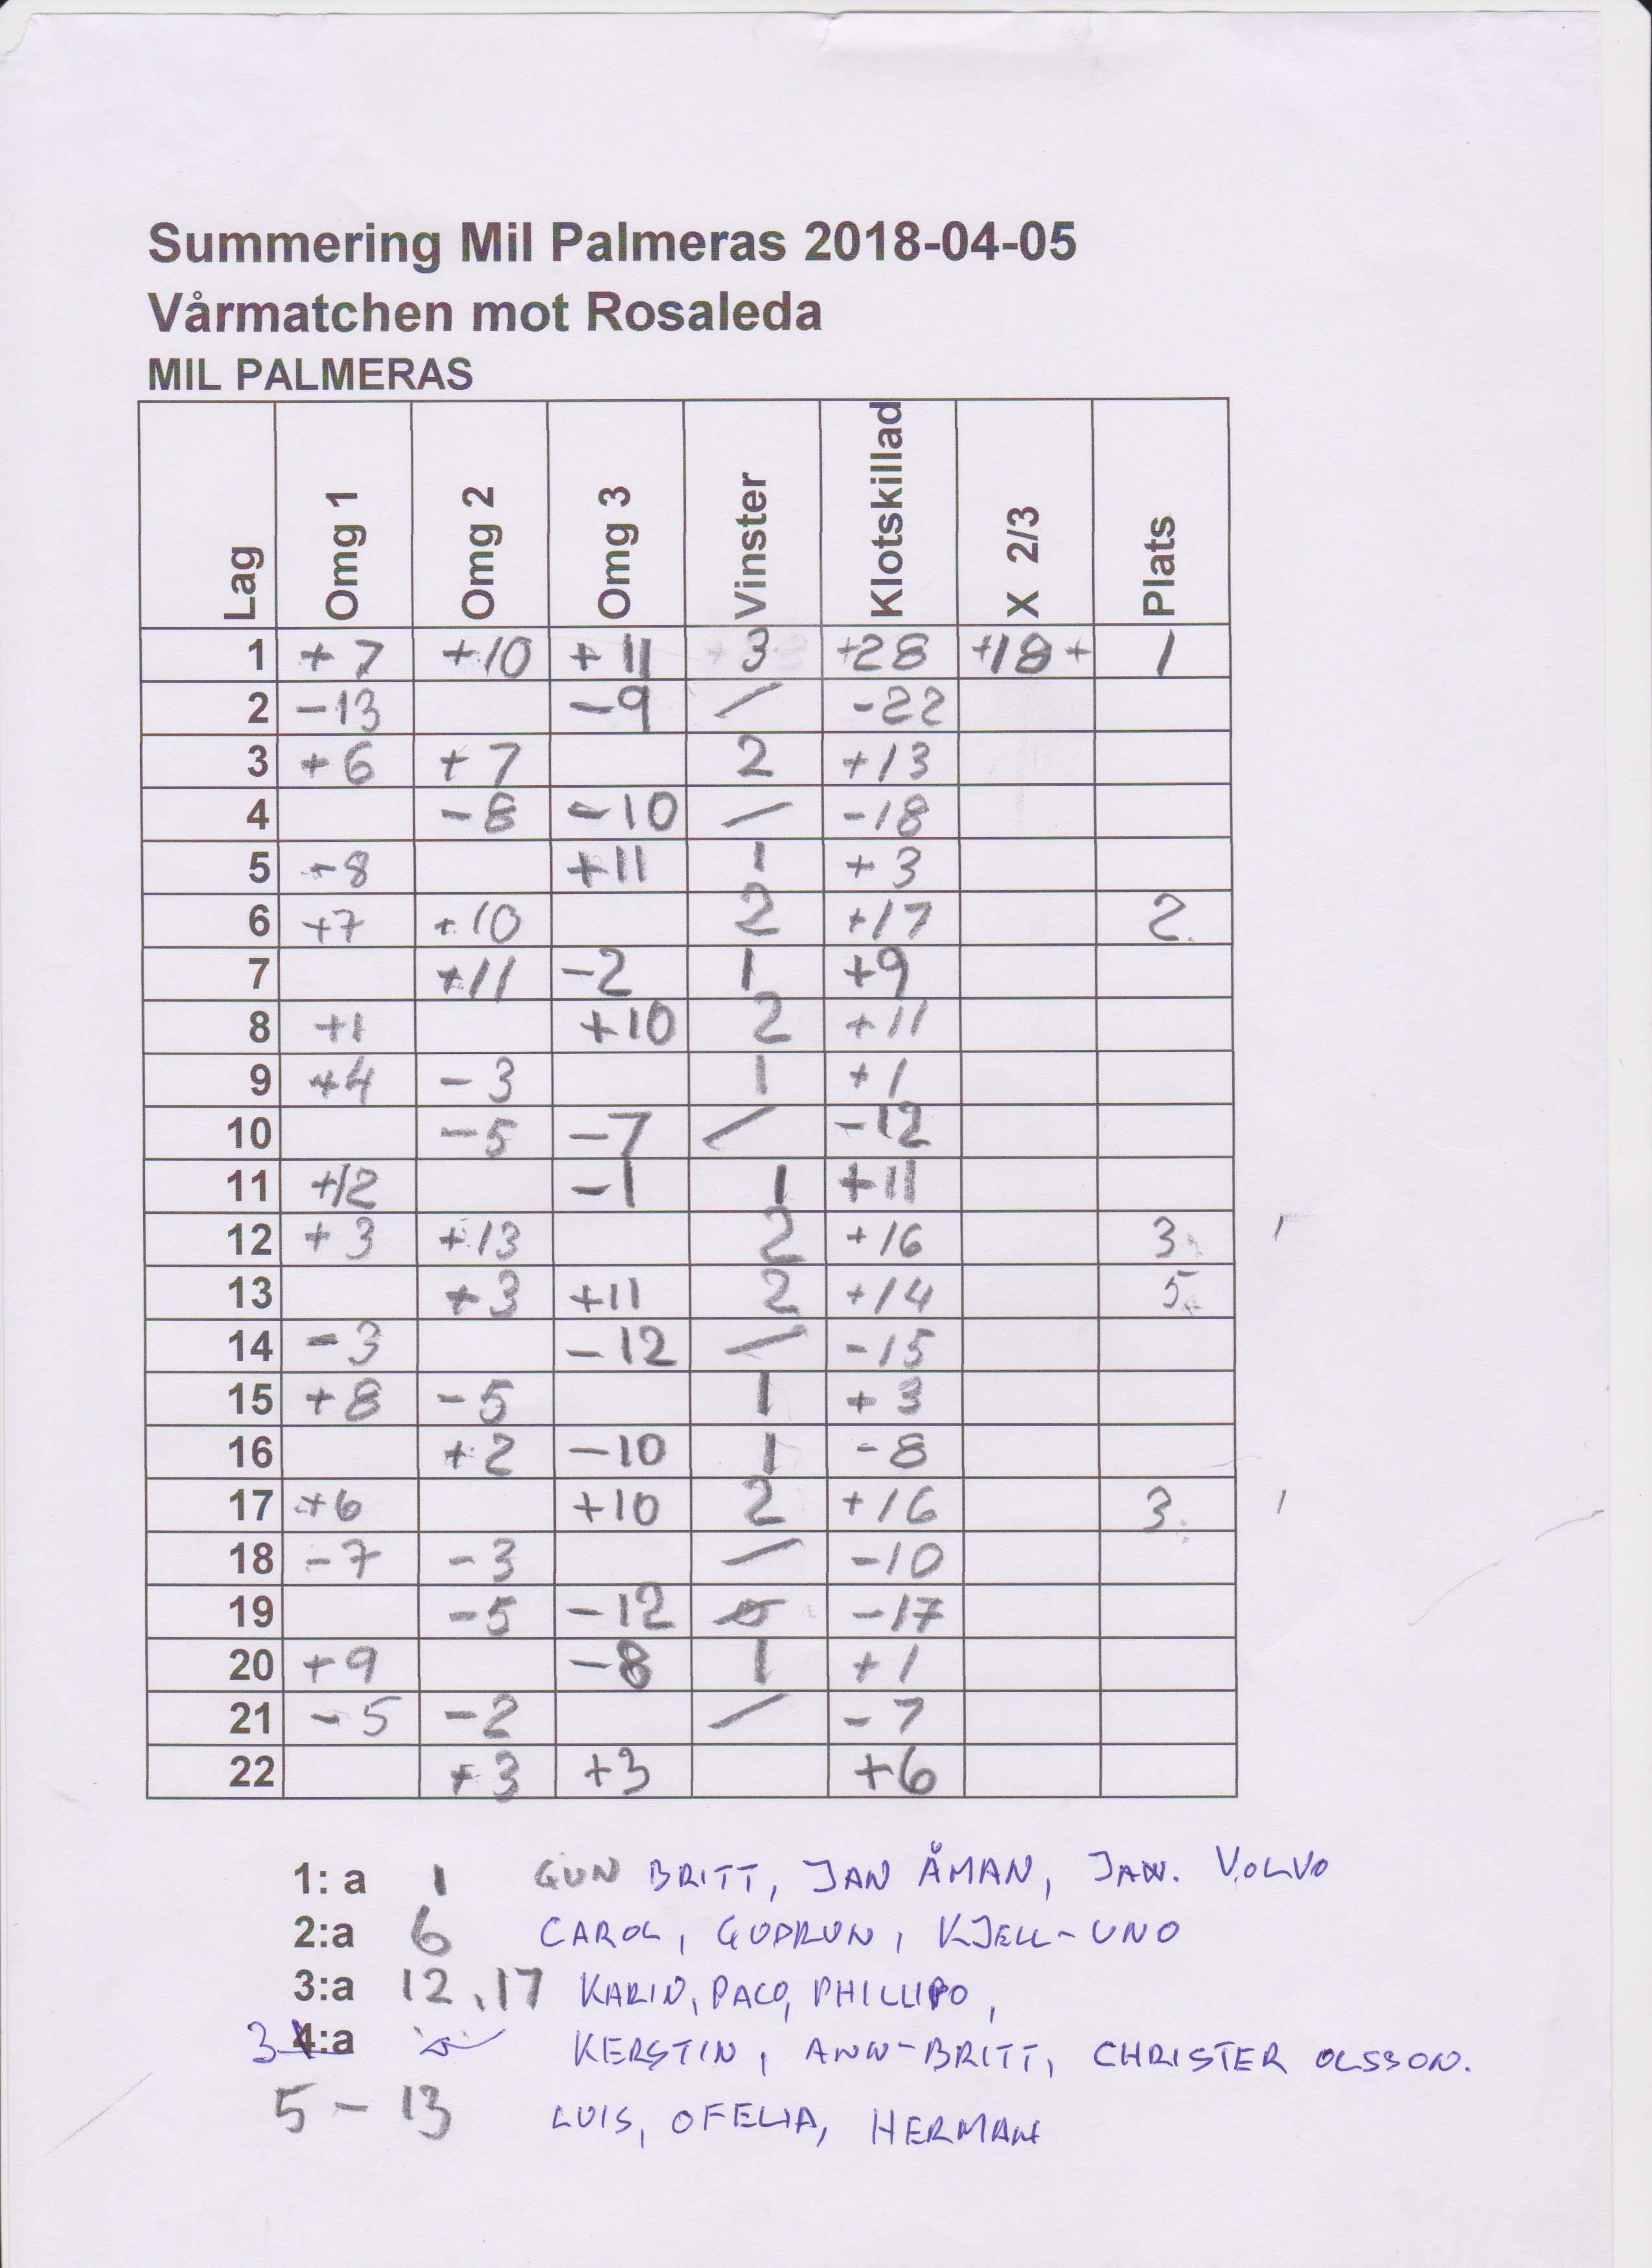 Summering Mil Palmeras 2018-04-05
Vårmatchen mot Rosaleda
MIL PALMERAS
Lag Omg 1 Omg 2 Omg 3 Vinster Klotskillad X 2/3 Plats
1 +7 +10 +11 3 +28 +18+ 1
2 -13 -9 / -22
3 +6 +7 2 +13
4 -8 -10 / -18
5 -8 +11 1 +3
6 +7 +10 2 +17 2.
7 +11 -2 1 +9
8 +1 +10 2 +11
9 +4 -3 1 +1
10 -5 -7 / -12
11 +12 -1 1 +11
12 +3 +13 2 +16 3
13 +3 +11 2 +14 5
14 -3 -12 / -15
15 +8 -5 1 +3
16 +2 -10 1 -8
17 +6 +10 2 +16 3.
18 -7 -3 / -10
19 -5 -12 -17
20 +9 -8 1 +1
21 -5 -2 / -7
22 +3 +3 +6
1: a 1 GUN BRITT, JAN ÅMAN, JAN. VOLVO
2:a 6 CAROL, GUDRUN, KJELL-UNO
3:a 12, 17 KARIN, PACO, PHILLIPO,
3 4:a KERSTIN, ANN-BRITT, CHRISTER OLSSON.
5 - 13 LUIS, OFELIA, HERMAN